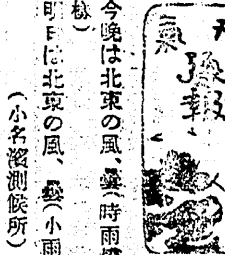 天氣
豫報
今晩は北東の風、曇(時雨模
様)
明日は北東の風、曇(小雨
(小名濱測候所)